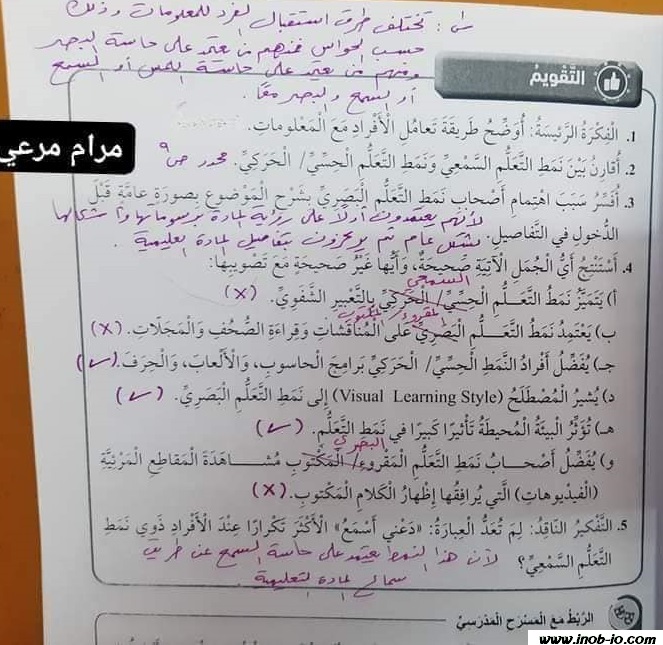 س١: تختلف طرق استقبال الفرد للمعلومات وذلك
حسب الحواس فمنهم من يعتمد على حاسة البصر
ومنهم من يعتمد على حاسة اللمس أو السمع
أو السمع والبصر معًا.
التَّقْويمُ
مرام مرعي
1. الْفِكْرَةُ الرَّئيسَةُ: أُوَضِّحُ طَريقَةَ تَعامُلِ الْأَفْرادِ مَعَ الْمَعْلوماتِ.
2. أُقارِنُ بَيْنَ نَمَطِ التَّعَلُّمِ السَّمْعِيِّ وَنَمَطِ التَّعَلُّمِ الْحِسِّيِّ/ الْحَرَكِيِّ. ص ٩
3. أُفَسِّرُ سَبَبَ اهْتِمامِ أَصْحابِ نَمَطِ التَّعَلُّمِ الْبَصَرِيِّ بِشَرْحِ الْمَوْضوعِ بِصورَةٍ عامَّةٍ قَبْلَ
لأنهم يعتمدون أولًا على رؤية المادة برسوماتها وأشكالها
الدُّخولِ في التَّفاصيلِ. بشكل عام ثم يركزون بتفاصيل المادة التعليمية.
4. أَسْتَنْتِجُ أَيُّ الْجُمَلِ الْآتِيَةِ صَحيحَةٌ، وَأَيُّها غَيْرُ صَحيحَةٍ مَعَ تَصْويبِها:
السمعي
أ) يَتَمَيَّزُ نَمَطُ التَّعَلُّمِ الْحِسِّيِّ/ الْحَرَكِيِّ بِالتَّعْبيرِ الشَّفَوِيِّ. (X)
المقروء/المكتوب
ب) يَعْتَمِدُ نَمَطُ التَّعَلُّمِ الْبَصَرِيِّ عَلى الْمُناقَشاتِ وَقِراءَةِ الصُّحُفِ وَالْمَجَلّاتِ. (X)
جـ) يُفَضِّلُ أَفْرادُ النَّمَطِ الْحِسِّيِّ/ الْحَرَكِيِّ بَرامِجَ الْحاسوبِ، وَالْأَلْعابَ، وَالْحِرَفَ. (✓)
د) يُشيرُ الْمُصْطَلَحُ (Visual Learning Style) إِلى نَمَطِ التَّعَلُّمِ الْبَصَرِيِّ. (✓)
هـ) تُؤَثِّرُ الْبيئَةُ الْمُحيطَةُ تَأْثيرًا كَبيرًا في نَمَطِ التَّعَلُّمِ. (✓)
البصري
و) يُفَضِّلُ أَصْحابُ نَمَطِ التَّعَلُّمِ الْمَقْروءِ/ الْمَكْتوبِ مُشاهَدَةَ الْمَقاطِعِ الْمَرْئِيَّةِ
(الْفيديوهاتِ) الَّتي يُرافِقُها إِظْهارُ الْكَلامِ الْمَكْتوبِ. (X)
5. التَّفْكيرُ النّاقِدُ: لِمَ تُعَدُّ الْعِبارَةُ: «دَعْني أَسْمَعُ» الْأَكْثَرَ تَكْرارًا عِنْدَ الْأَفْرادِ ذَوي نَمَطِ
التَّعَلُّمِ السَّمْعِيِّ؟ لأن هذا النمط يعتمد على حاسة السمع عن طريق
سماع المادة التعليمية.
الرَّبْطُ مَعَ الْمَسْرَحِ الْمَدْرَسِيِّ
www.inob-io.com